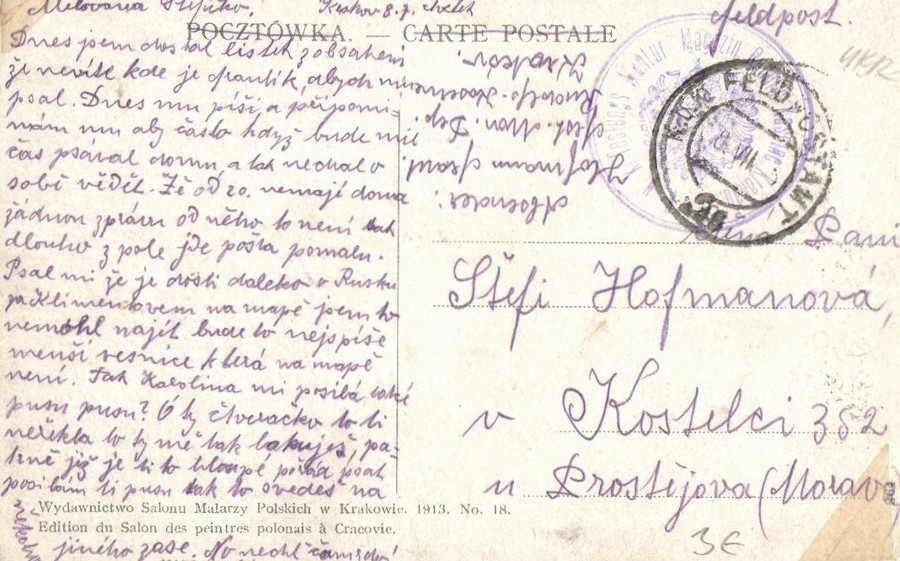 Milovaná Štefinko, Krakov 8.7. čtvrtek
Dnes jsem dostal lístek z obsahem
že nevíte kde je Frantík, abych mu
psal. Dnes mu píši a připomí-
nám mu aby často když bude mít
čas psával domu a tak nechal o
sobě vědět. Že od 20. nemají doma
žádnou zprávu od něho to není tak
dlouho z pole jde pošta pomalu.
Psal mi že je dosti daleko v Rusku
za Klimentovem na mapě jsem to
nemohl najít bude to nejspíše
menší vesnice která na mapě
není. Tak Karolina mi posílá také
pusu pusu? O ty čtveračko to ti
neřekla to ty mě tak lakuješ, pa-
trně již je ti to hloupé pořád psat
posílám ti pusu tak to svedeš na
někoho
jiného zase. No nechť
POCZTÓWKA. — CARTE POSTALE
Feldpost.
UKR2
Absender:
Hofmann
Krakov
K.u.K. FELDPOSTAMT
8 VII
Paní
Štefi Hofmanová,
v Kostelci 352
u Prostějova (Morava)
Wydawnictwo Salonu Malarzy Polskich w Krakowie. 1913. No. 18.
Edition du Salon des peintres polonais à Cracovie.
3€